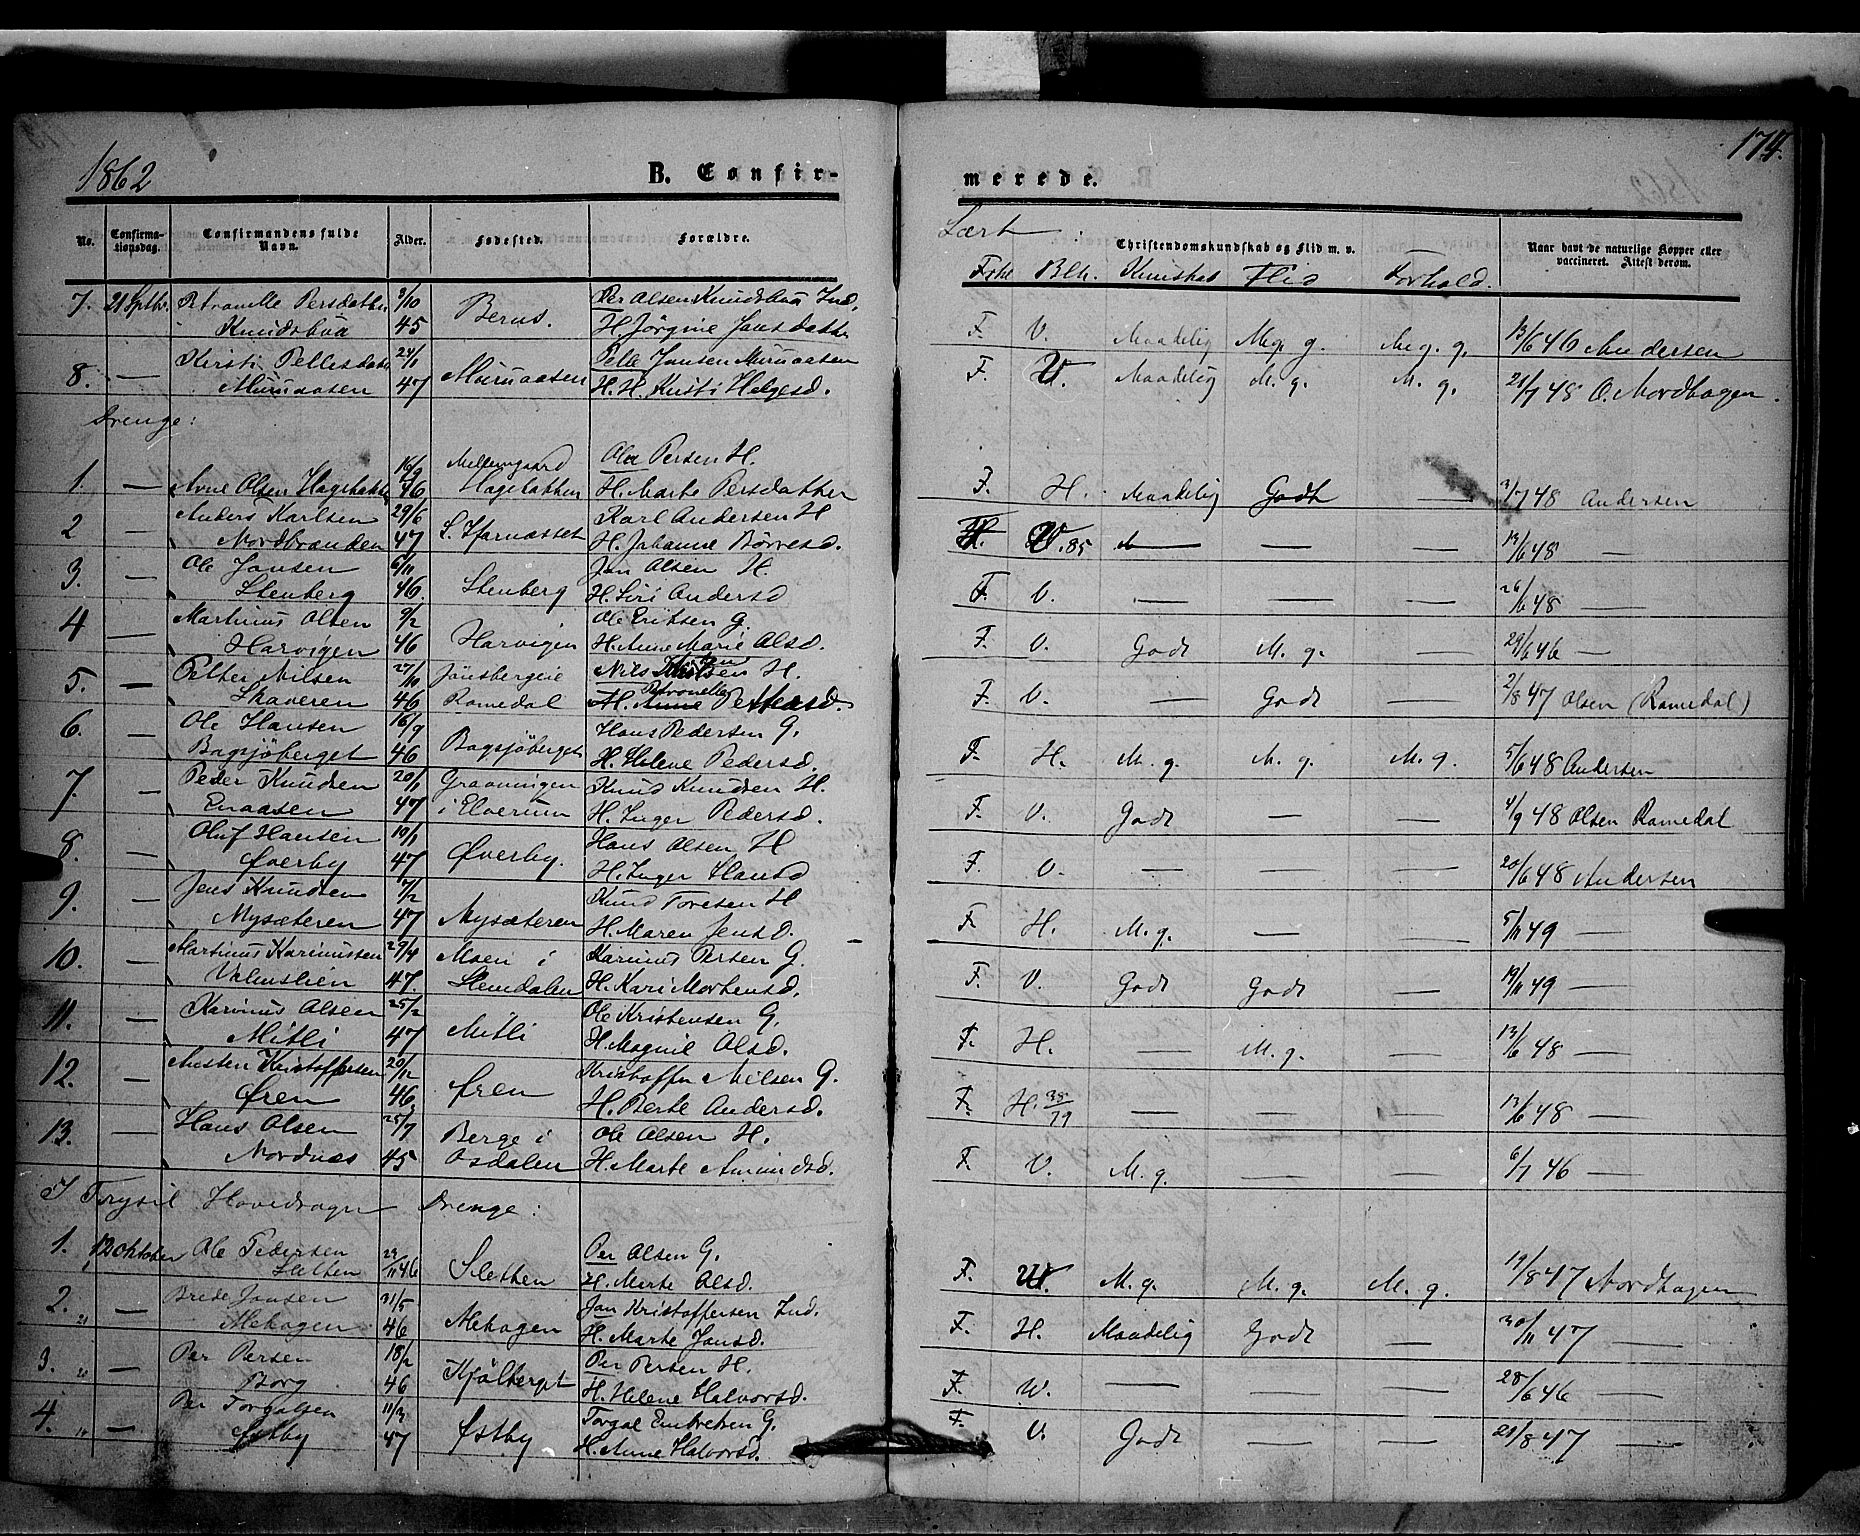 1862 B. Confir- merede. 174.
No. Confirma-tionsdag. Confirmandens fulde Navn. Alder. Fødested. Forældre. Christendomskundskab og Flid m. v. Naar havt de naturlige Kopper eller vaccineret. Attest derom.
Læst Blk. Flid Forhold.
7. 21 Persdatter 3/10 Per Olsen Knudsboa Ind.
Knudsboa 45 H. Jörgine Jansdatter F. V. Maadelig M. g. M. g. 13/6 46 Andersen
8. — Kirsti Pellesdatter 24/1 Pelle Jansen Muruaasen
Muruaasen 47 Muruaasen H. H. Kirsti Helgesd. F. V. Maadelig M. g. M. g. 21/7 48 O. Nordhagen.
Drenge:
1. — Arne Olsen 16/9 46 Ola Persen H.
H. Marte Persdatter F. H. Maadelig Godt — 2/7 48 Andersen
2 — Anders Karlsen 29/6 Karl Andersen H
Nordbranden 47 H. Johanne Börresd. V. 85 — — — 19/6 48 —
3. — Ole Jansen 6/11 Jan Olsen H.
Stenberg 46. Stenberg H. Siri Andersd F. V. — — — 26/6 48 —
4 — Martinus Olsen 9/2 Ole Eriksen G.
Harvigen 46 Harvigen H. Anne Marie Olsd. F. V. Godt M. g. — 29/6 46 —
5. — Petter Nilsen 27/10 Jönsbergeie Nils H.
Skaveren 46 Romedal H. Petronelle Pettersd. F. V. — Godt — 2/8 47 Olsen (Romedal)
6. — Ole Hansen 16/9 Hans Pedersen G.
Bagsjöberget 46 Bagsjöberget H. Helene Pedersd. F. H. M. g. M. g. M. g. 5/6 48 Andersen
7. — Peder Knudsen 20/1 Knud Knudsen H
Enaasen 47 i Elverum H. Inger Pedersd. F. V. Godt — — 4/9 48 Olsen Romedal
8. — Oluf Hansen 10/1 Hans Olsen H
Øverby 47 Øverby. H. Inger Hansd F. V. — — — 20/6 48 Andersen
9. — Jens Knudsen 7/2 Knud Toresen H
Mysæteren 47 Mysæteren H. Maren Jensd. F. H. M. g. — — 5/11 49 —
10. — Martinus Karinussen 29/4 Moen i Karinus Persen G.
47. Slemdalen H. Kari Mortensd. F. V. Godt Godt — 19/11 49 —
11. — Karinus Olsen 25/2 Ole Kristensen G.
Mitli 47 Mitli H. Magnil Olsd. F. H. — M. g. — 13/6 48 —
12. — Kristoffersen 20/12 Kristoffer Nilsen G.
Øren 46 Øren H. Berte Andersd. F. H. — — — 13/6 48 —
13. — Hans Olsen 25/7 Berge i Ole Olsen H.
Nordnæs 45 Osdalen H. Marte Amundsd. F. V. M. g. — — 6/7 46 —
I Trysil Hovedsogn Drenge:
1. 12 Oktober Ole Pedersen 29/11 46 Per Olsen G.
Sletten Sletten H. Marte Olsd. F. M. g. M. g. M. g. 19/8 47 Nordhagen
2. — Brede Jansen 31/5 Jan Kristoffersen Ind.
Mehagen 46 Mehagen H. Marte Jansd. F. H. Maadelig Godt — 30/11 47 —
3. — Per Persen 18/2 Per Persen H.
Borg 46 Kjölberget H. Helene Halvorsd. F. V. — — — 28/6 46 —
4. — Per Torgalsen 11/3 Torgal Embretsen G.
Østby 47 Østby H. Anne Halvorsd. F. V. Godt — — 21/8 47 —